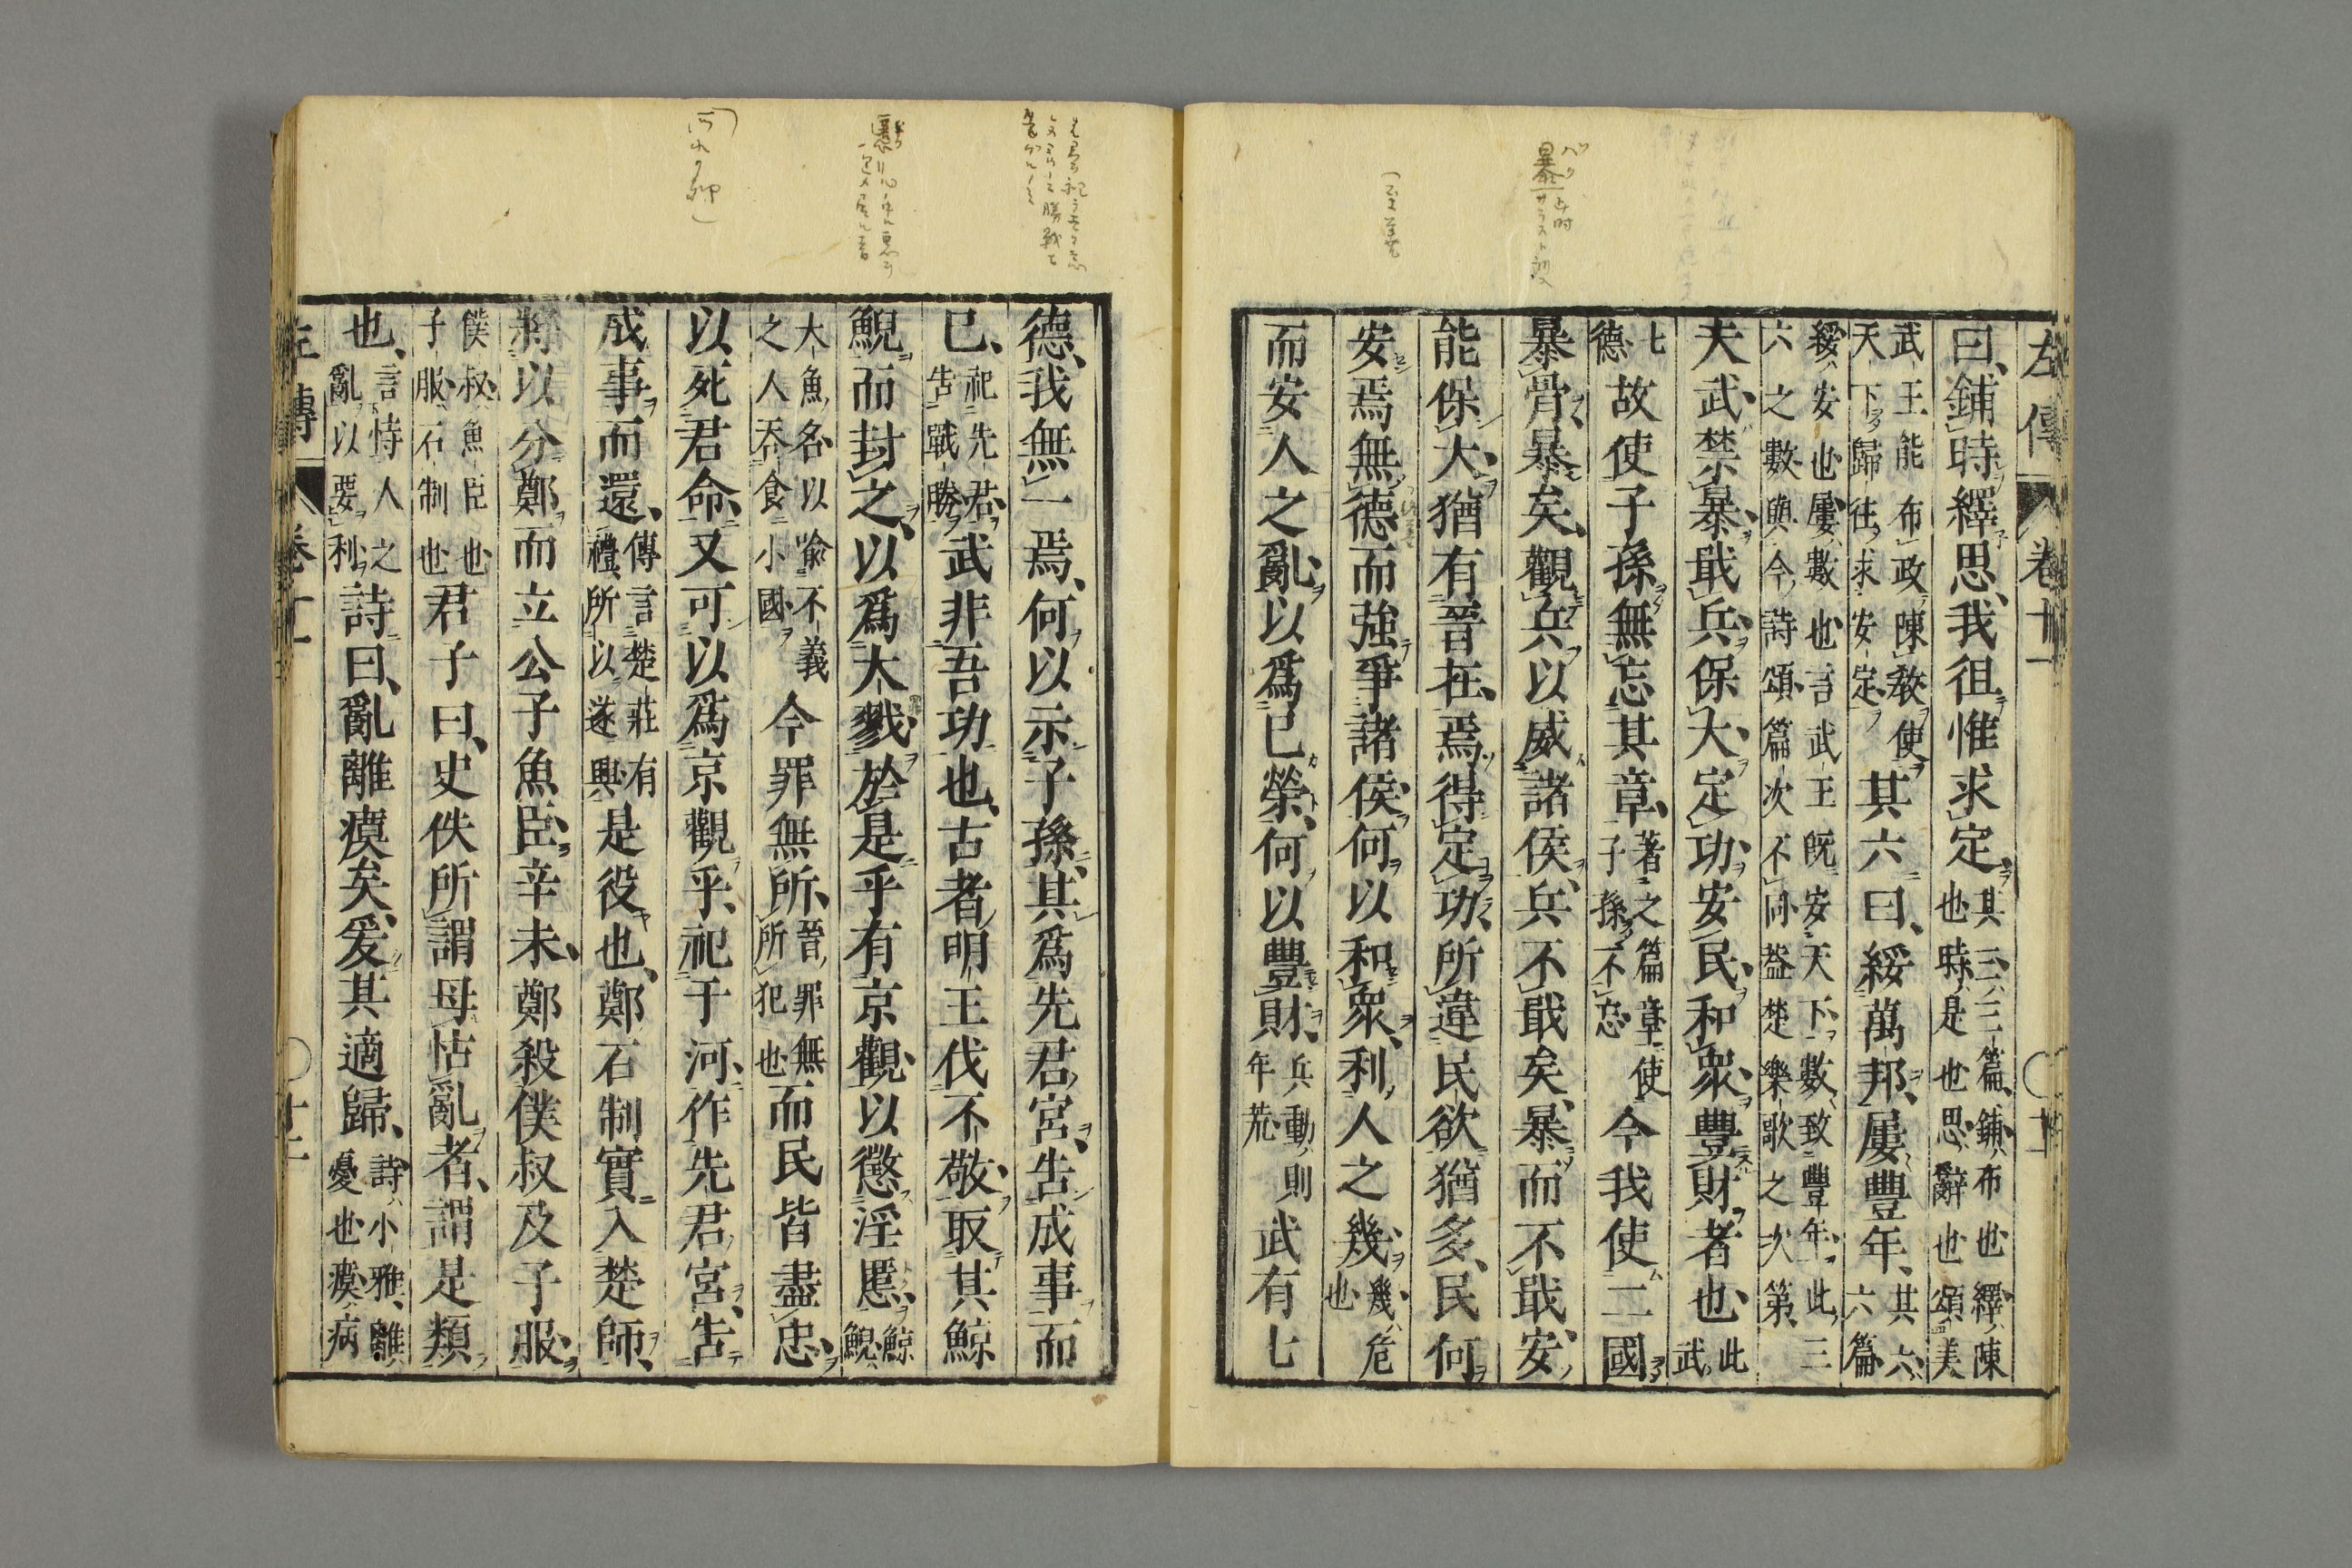 左傳 卷十一
曰、鋪時繹思、我徂惟求定、其三、三篇、鋪、布也繹、陳也時、是也思、辭也頌美
武王能布政陳教使天下歸往、求安定、其六曰、綏萬邦、屢豐年、其六、六篇
綏、安也屢、數也言武王既安天下、數致豐年、此三六之數與今詩頌篇次不同蓋楚樂歌之次第
夫武、禁暴戢兵、保大、定功、安民、和衆、豐財者也、此武
七德故使子孫無忘其章、著之篇章使子孫不忘今我使二國
暴骨、暴矣、觀兵以威諸侯、兵不戢矣、暴而不戢、安
能保大、猶有晉在、焉得定功、所違民欲猶多、民何
安焉無德而強爭諸侯、何以和衆、利人之幾、幾、危也
而安人之亂以爲己榮、何以豐財、兵動則年荒武有七
德、我無一焉、何以示子孫、其爲先君宮、告成事而
已、祀先君告戰勝武非吾功也、古者明王伐不敬、取其鯨
鯢而封之、以爲大戮、於是乎有京觀以懲淫慝、鯨鯢
大魚名以喻不義之人吞食小國今罪無所、晉罪無所犯也而民皆盡忠、
以死君命、又可以爲京觀乎、祀于河、作先君宮、告
成事而還、傳言楚莊有禮所以遂興是役也、鄭石制實入楚師、
將以分鄭而立公子魚臣、辛未、鄭殺僕叔及子服、
僕叔魚臣也子服石制也君子曰、史佚所謂毋怙亂者、謂是類
也、言恃人之亂以要利詩曰、亂離瘼矣、爰其適歸、詩小雅、離憂也瘼病
左傳 卷十一